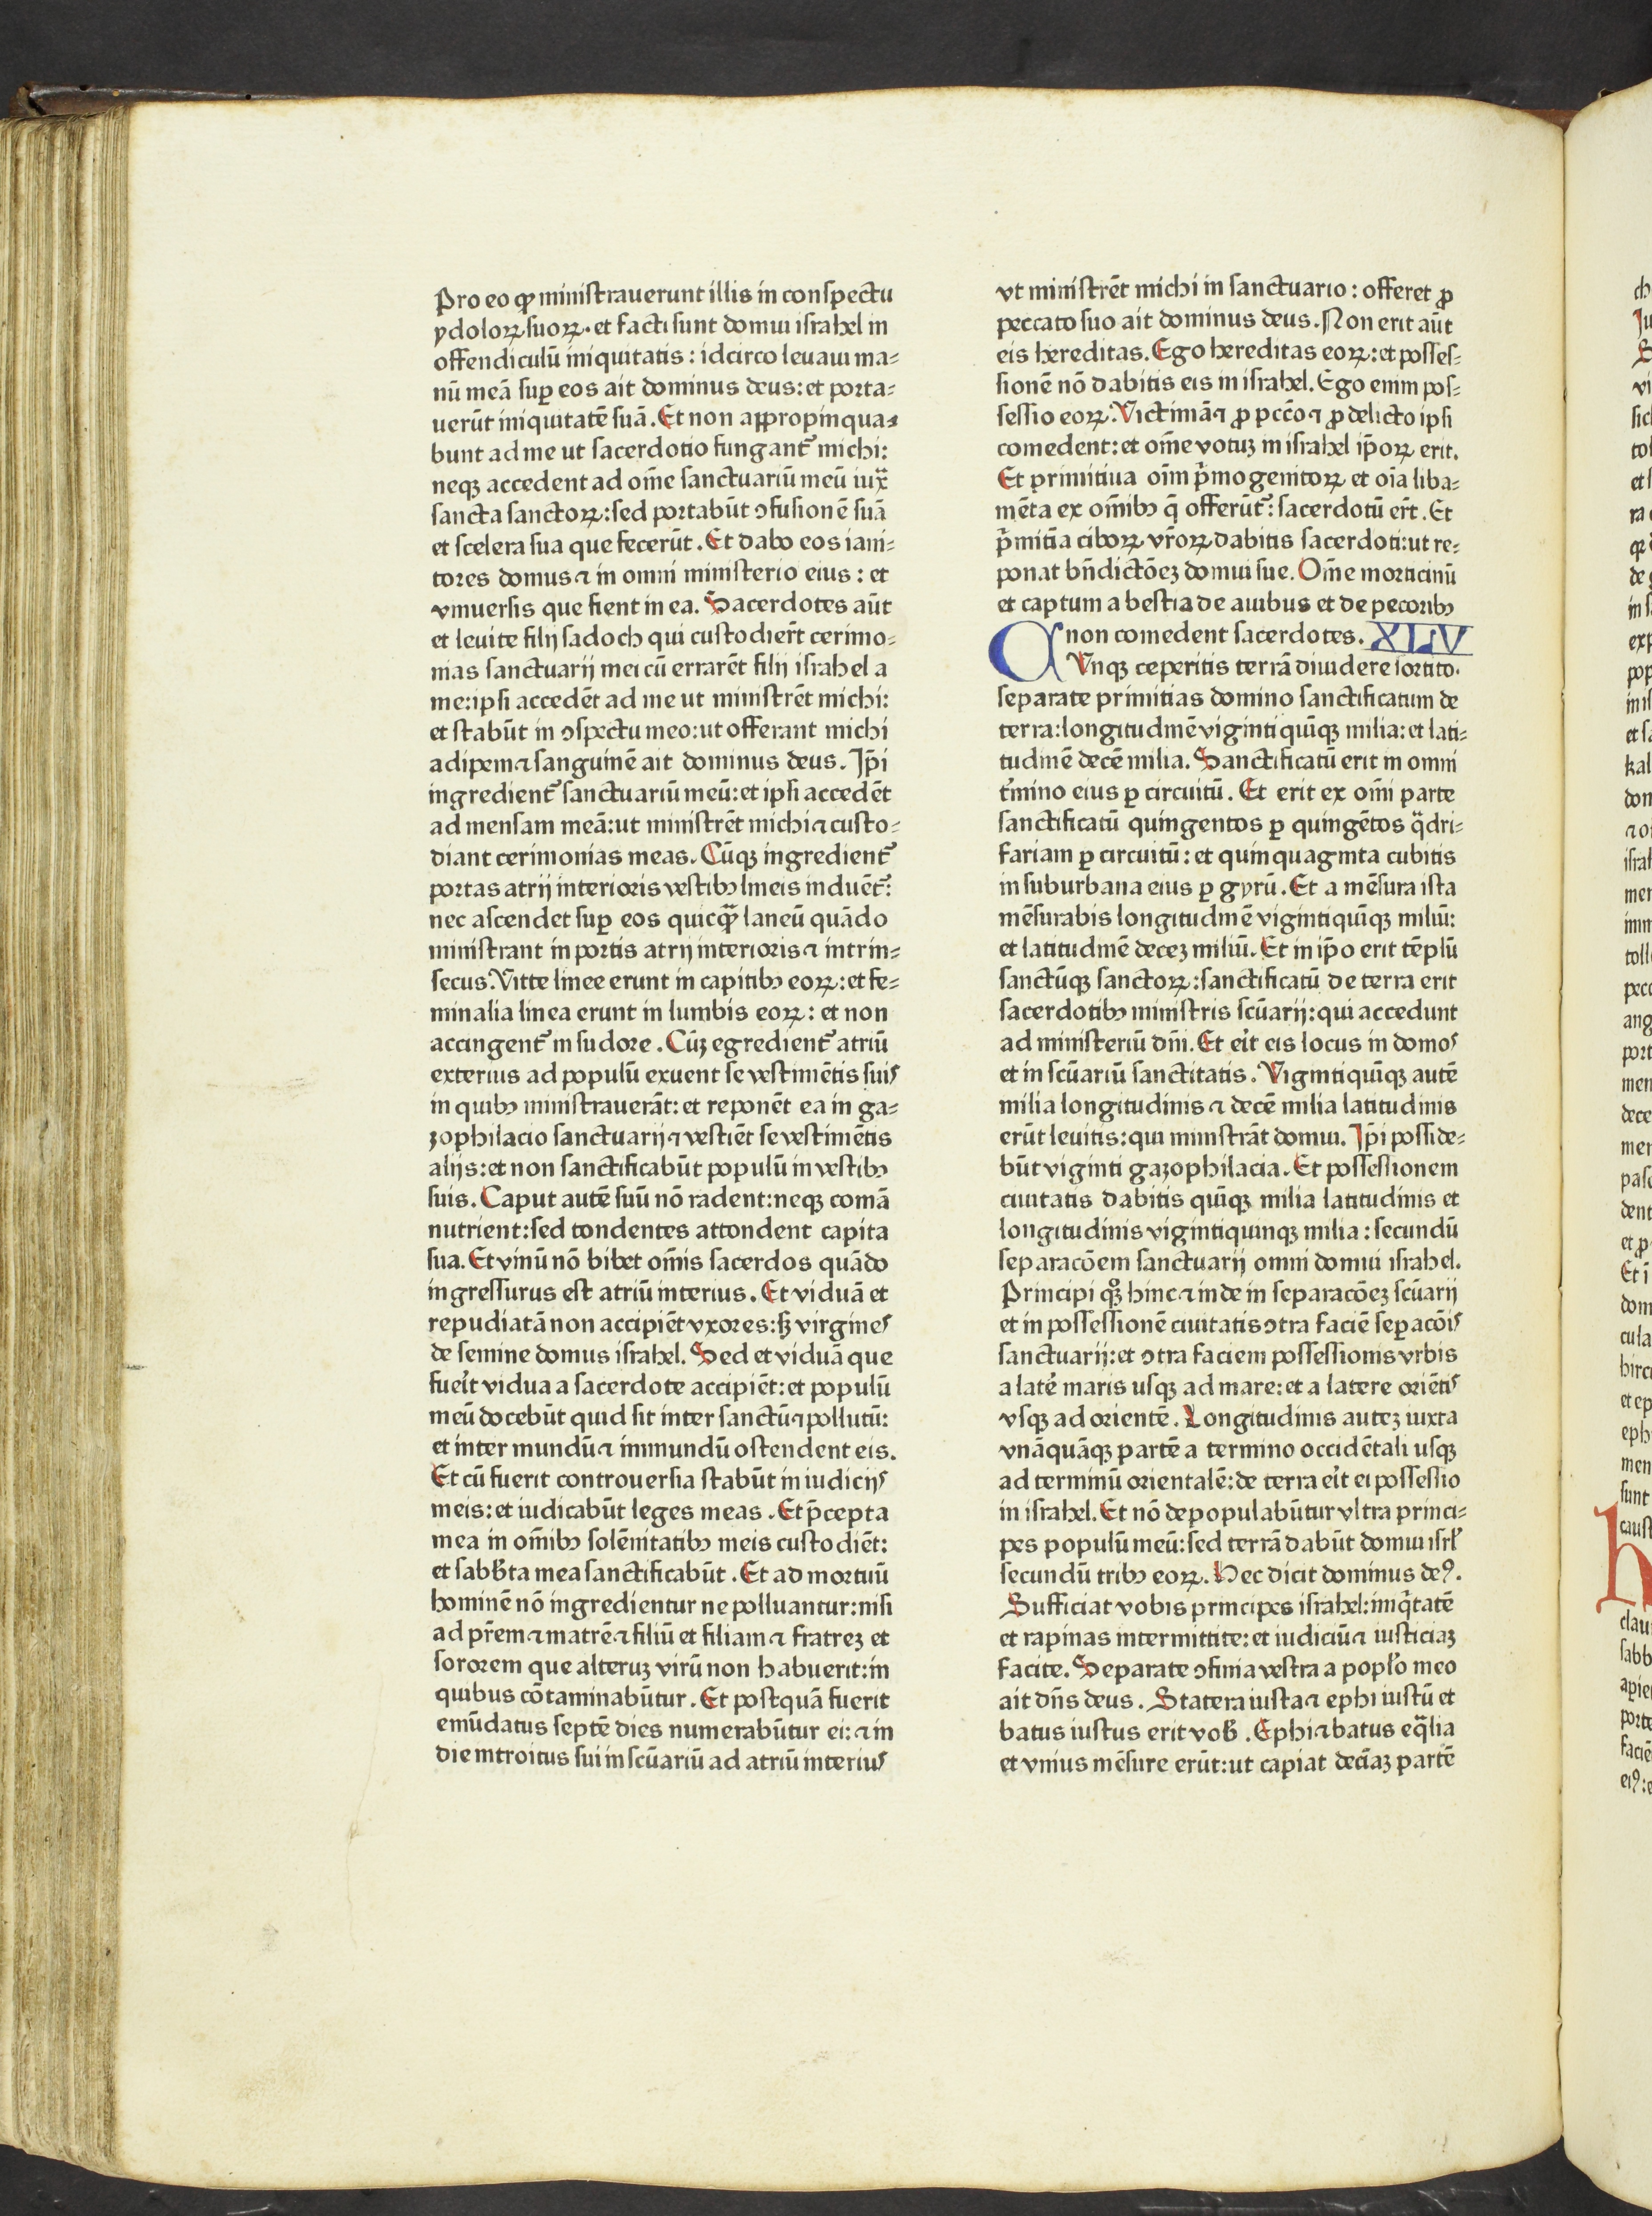 Pro eo ꝙ ministrauerunt illis in conspectu
ydoloꝝ suoꝝ. et facti sunt domui israhel in
offendiculū iniquitatis: idcirco leuaui ma⸗
nū meā suꝑ eos ait dominus deus: et porta⸗
uerūt iniquitatē suā. Et non appropinqua⸗
bunt ad me ut sacerdotio fungant᷑ michi:
neqꝫ accedent ad om̄e sanctuariū meū iuxͣ
sancta sanctoꝝ: sed portabūt ꝯfusionē suā
et scelera sua que fecerūt. Et dabo eos iani⸗
tores domus ⁊ in omni ministerio eius: et
vniuersis que fient in ea. Sacerdotes aūt
et leuite filij sadoch qui custodiert᷑ cerimo⸗
nias sanctuarij mei cū errarēt filij israhel a
me: ipsi accedēt ad me ut ministrēt michi:
et stabūt in ꝯspectu meo: ut offerant michi
adipem ⁊ sanguinē ait dominus deus. Ip̄i
ingredient᷑ sanctuariū meū: et ipsi accedēt
ad mensam meā: ut ministrēt michi ⁊ custo⸗
diant cerimonias meas. Cūqꝫ ingredient᷑
portas atrij interioris vestibꝫ lineis induēt᷑:
nec ascendet suꝑ eos quicqͣꝫ laneū quādo
ministrant in portis atrij interioris ⁊ intrin⸗
secus. Vitte linee erunt in capitibꝫ eoꝝ: et fe⸗
minalia linea erunt in lumbis eoꝝ: et non
accingent᷑ in sudore. Cūꝫ egredient᷑ atriū
exterius ad populū exuent se vestimētis suis
in quibꝫ ministrauerāt: et reponēt ea in ga⸗
zophilacio sanctuarij ⁊ vestiēt se vestimētis
alijs: et non sanctificabūt populū in vestibꝫ
suis. Caput autē suū nō radent: neqꝫ comā
nutrient: sed tondentes attondent capita
sua. Et vinū nō bibet om̄is sacerdos quādo
ingressurus est atriū interius. Et viduā et
repudiatā non accipiēt vxores: sꝫ virgines
de semine domus israhel. Sed et viduā que
fueīt vidua a sacerdote accipiēt: et populū
meū docebūt quid sit inter sanctū ⁊ pollutū:
et inter mundū ⁊ immundū ostendent eis.
Et cū fuerit controuersia stabūt in iudicijs
meis: et iudicabūt leges meas. Et p̄cepta
mea in om̄ibꝫ solēnitatibꝫ meis custodiēt:
et sabb̄ta mea sanctificabūt. Et ad mortuū
hominē nō ingredientur ne polluantur: nisi
ad pr̄em ⁊ matrē ⁊ filiū et filiam ⁊ fratreꝫ et
sororem que alteruꝫ virū non habuerit: in
quibus cōtaminabūtur. Et postquā fuerit
emūdatus septē dies numerabūtur ei: ⁊ in
die introitus sui in scūariū ad atriū interius
vt ministrēt michi in sanctuario: offeret ꝓ
peccato suo ait dominus deus. Non erit aūt
eis hereditas. Ego hereditas eoꝝ: et posses⸗
sionē nō dabitis eis in israhel. Ego enim pos⸗
sessio eoꝝ. Victimā ⁊ ꝓ pctō ⁊ ꝓ delicto ipsi
comedent: et om̄e votuꝫ in israhel ip̄oꝝ erit.
Et primitiua oīm pͥmogenitoꝝ et oīa liba⸗
mēta ex om̄ibꝫ q̄ offerūt᷑: sacerdotū ert᷑. Et
pͥmitīa ciboꝝ vr̄oꝝ dabitis sacerdoti: ut re⸗
ponat bn̄dictōeꝫ domui sue. Om̄e morticinū
et captum a bestia de auibus et de pecoribꝫ
non comedent sacerdotes. XLV
CVnqꝫ ceperitis terrā diuidere sortito.
separate primitias domino sanctificatum de
terra: longitudinē viginti quīqꝫ milia: et lati⸗
tudinē decē milia. Sanctificatū erit in omni
t᷑mino eius ꝑ circuitū. Et erit ex om̄i parte
sanctificatū quingentos ꝑ quingētos qͣdri⸗
fariam ꝑ circuitū: et quinquaginta cubitis
in suburbana eius ꝑ gyrū. Et a mēsura ista
mēsurabis longitudinē vigintiquīqꝫ miliū:
et latitudinē deceꝫ miliū. Et in ip̄o erit tēplū
sanctūqꝫ sanctoꝝ: sanctificatū de terra erit
sacerdotibꝫ ministris scūarij: qui accedunt
ad ministeriū dn̄i. Et eīt eis locus in domos
et in scūariū sanctitatis. Vigintiquīqꝫ autē
milia longitudinis ⁊ decē milia latitudinis
erūt leuitis: qui ministrāt domui. Ip̄i posside⸗
būt viginti gazophilacia. Et possessionem
ciuitatis dabitis quīqꝫ milia latitudinis et
longitudinis vigintiquinqꝫ milia: secundū
separacōem sanctuarij omni domui israhel.
Principi qꝫ hinc ⁊ inde in separacōeꝫ scūarij
et in possessionē ciuitatis ꝯtra faciē seꝑacōis
sanctuarij: et ꝯtra faciem possessionis vrbis
a late᷑ maris usqꝫ ad mare: et a latere oriētis
vsqꝫ ad orientē. Longitudinis auteꝫ iuxta
vnāquāqꝫ partē a termino occidētali usqꝫ
ad terminū orientalē: de terra eīt ei possessio
in israhel. Et nō depopulabūtur vltra princi⸗
pes populū meū: sed terrā dabūt domui isrl̄
secundū tribꝫ eoꝝ. Hec dicit dominus deꝰ.
Sufficiat vobis principes israhel: iniqͥtatē
et rapinas intermittite: et iudiciū ⁊ iusticiaꝫ
facite. Separate ꝯfinia vestra a popl̄o meo
ait dn̄s deus. Statera iusta ⁊ ephi iustū et
batus iustus erit vob̄. Ephi ⁊ batus eqͣlia
et vnius mēsure erūt: ut capiat deciāꝫ partē